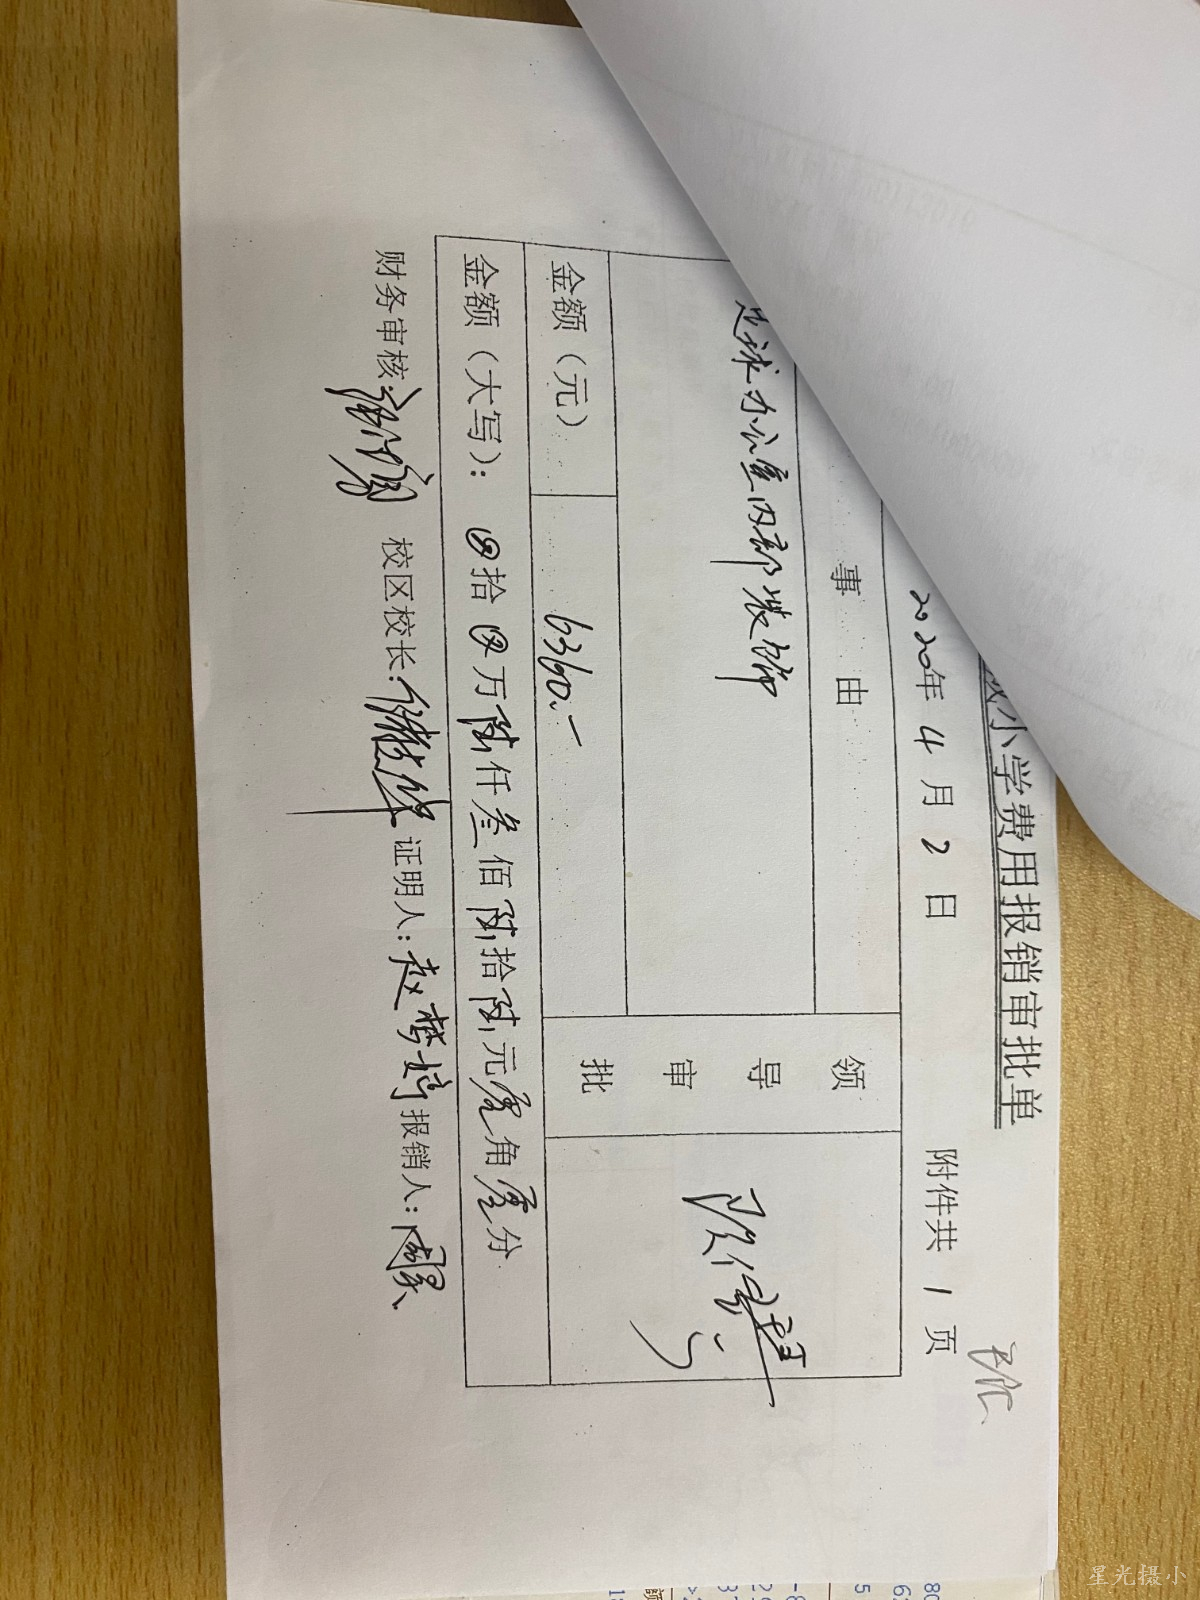 小学费用报销审批单
2020年 4 月 2 日 附件共 1 页
事 由
领导审批
足球办公室内部装饰
金额（元） 6360.-
金额（大写）： ⊗拾 ⊗万 陆仟 叁佰 陆拾 陆元 零角 零分
财务审核： 校区校长： 证明人：赵梦婷 报销人：
星光摄小